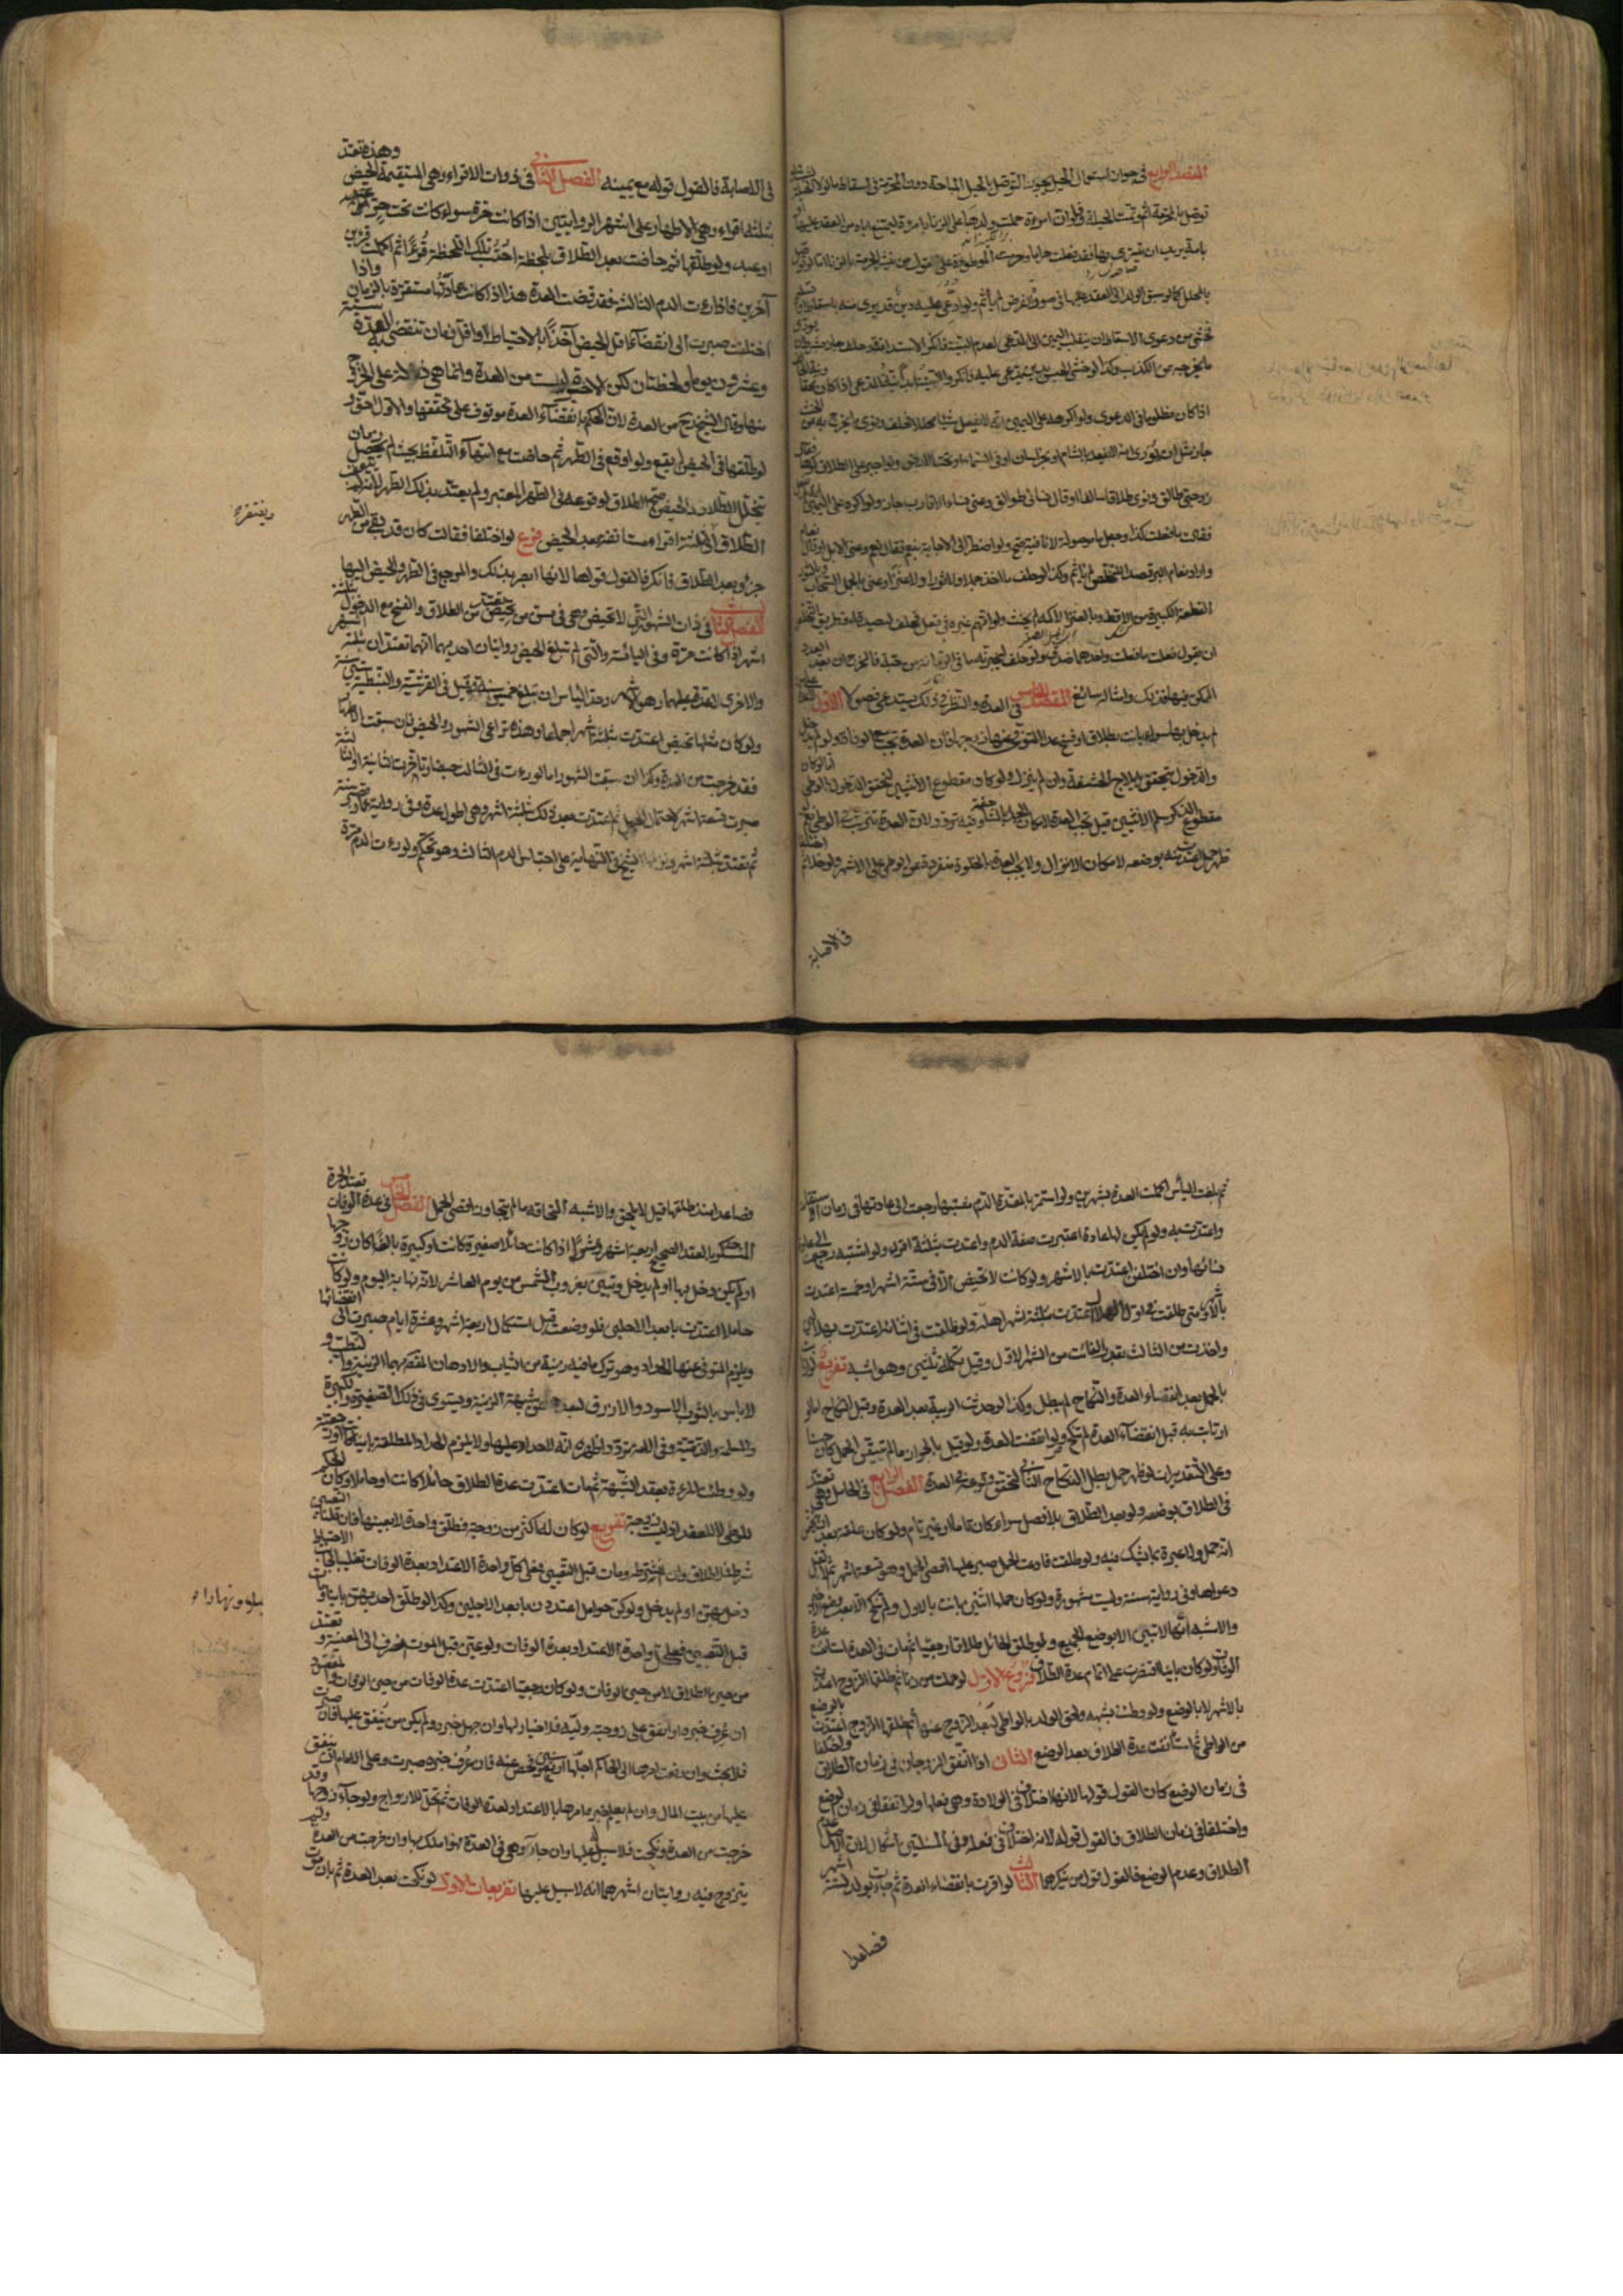 المقصد الرابع في جواز استعمال الحيل يجوز التوصل بالحيل المباحة دون المحرمة في اسقاط ما لولا الحيلة لثبت
توصل بالمحرمة اثم وتمت الحيلة فلو ان امرءة حملت ولدها على الزنا بامرءة ليمتنع اباه من العقد عليها او
بامة يريد ان يتسرى بها فقد فعلت حراما وحرمت الموطوءة على القول بان الزنا ينشر الحرمة
بالمحلل كما لو سبق الولد الى العقد عليها في صورة الفرض لم يأثم ولو ادعى عليه دين قد برئ منه باسقاط او تسليم
فخشي من دعوى الاسقاط ان ينقلب اليمين الى المدعي لعدم البينة فانكر الاستدانة فحلف جاز بشرط ان يوري
ما يخرجه عن الكذب وكذا لو خشي الحبس بدين يدعى عليه فانكر والنية ابدا نية المدعي اذا كان محقا ونية الحالف
اذا كان مظلوما في الدعوى ولو اكرهه على اليمين انه لا يفعل شيئا محللا فحلف ونوى ما يخرج به عن الحنث
جاز مثل ان يوري انه لا يفعله بالشام او بخراسان او في السماء او تحت الارض ولو اجبر على الطلاق كرها فقال
زوجتي طالق ونوى طلاقا سالفا او قال نسائي طوالق وعنى نساء الاقارب جاز ولو اكره على اليمين
فقال ما فعلت كذا وجعل ما موصولة لا نافية صح ولو اضطر الى الاجابة بنعم فقال نعم وعنى الابل او قال نعام
واراد نعام البر قصدا للتخلص لم يأثم وكذا لو حلف ما اخذ جملا ولا ثورا ولا عنزا وعنى بالجمل السحاب وبالثور
القطعة الكبيرة من الاقط وبالعنز الاكمة لم يحنث ولو اتهم غيره في فعل فحلف ليصدقنه فطريق التخلص
ان يقول فعلت ما فعلت واحدهما صدق ولو حلف ليخبرنه بما في الرمانة من حبة فالمخرج ان يعد العدد
الممكن فيها فذلك وامثاله سائغ المقصد الخامس في العدد والنظر في ذلك يستدعي فصولا الاول لا عدة على من
لم يدخل بها سواء بانت بطلاق او فسخ عدا المتوفى عنها زوجها فان العدة تجب مع الوفاة ولو لم يدخل
والدخول يتحقق بايلاج الحشفة وان لم ينزل ولو كان مقطوع الانثيين لتحقق الدخول بالوطي اما لو كان
مقطوع الذكر سليم الانثيين قيل تجب العدة لامكان الحمل بالمساحقة وفيه تردد لان العدة تترتب على الوطي نعم
ظهر حمل اعتدت منه بوضعه لامكان الانزال ولا يجب العدة بالخلوة منفردة عن الوطي على الاشهر ولو خلا ثم اختلفا
في الاصابة
في الاصابة فالقول قوله مع يمينه الفصل الثاني في ذوات الاقراء وهي المستقيمة الحيض وهذه تعتد
بثلثة اقراء وهي الاطهار على اشهر الروايتين اذا كانت حرة سواء كانت تحت حر
او عبد ولو طلقها ثم حاضت بعد الطلاق بلحظة احتسب تلك اللحظة قرءا ثم اكملت قرءين
آخرين فاذا رءت الدم الثالث فقد قضت العدة هذا اذا كانت عادتها مستقرة بالزمان واذا
اختلفت صبرت الى انقضاء اقل الحيض اخذا بالاحتياط واقل زمان تنقضي به العدة ستة
وعشرون يوما ولحظتان لكن الاخيرة ليست من العدة وانما هي دلالة على الخروج
منها وقال الشيخ رح من العدة لان الحكم بانقضاء العدة موقوف على تحققها والاول احق ولو
لو طلقها في الحيض لم يقع ولو وقع في الطهر ثم حاضت مع انتهاء التلفظ بحيث لم يحصل زمان
تخلل الطلاق والحيض صح الطلاق لوقوعه في الطهر المعتبر ولم تعتد بذلك الطهر لانه لم يتعقب
ويفتقر
الطلاق الى ثلثة اقراء مستانفة بعد الحيض فرع لو اختلفا فقالت كان قد بقي من الطهر
جزء بعد الطلاق فانكر فالقول قولها لانها ابصر بذلك والمرجع في الطهر والحيض اليها
الفصل الثالث في ذات الشهور التي لا تحيض وهي في سن من تحيض تعتد من الطلاق والفسخ مع الدخول بثلثة
اشهر اذا كانت حرة وفي اليائسة والتي لم تبلغ الحيض روايتان احديهما انهما تعتدان بثلثة اشهر
والاخرى لا عدة عليهما وهي الاشهر وحد الياس ان تبلغ خمسين سنة وقيل في القرشية والنبطية ستين سنة
ولو كان مثلها تحيض اعتدت بثلثة اشهر اجماعا وهذه تراعي الشهور والحيض فان سبقت الاطهار
فقد خرجت من العدة وكذا ان سبقت الشهور اما لو رءت في الثالث حيضا وتاخرت الثانية او الثالثة
صبرت تسعة اشهر لاحتمال الحمل ثم اعتدت بعد ذلك بثلثة اشهر وهي اطول عدة وفي رواية عمار تصبر سنة
ثم تعتد بثلثة اشهر ونزلها الشيخ في النهاية على احتباس الدم الثالث وهو تحكم ولو رءت الدم مرة
ثم بلغت الياس اكملت العدة بشهرين ولو استمر بالمعتدة الدم مشتبها رجعت الى عادتها في زمان الاستقامة
واعتدت به ولو لم يكن لها عادة اعتبرت صفة الدم واعتدت بثلثة اقراء ولو اشتبه رجعت الى عادة
نسائها وان اختلفن اعتدت بالاشهر ولو كانت لا تحيض الا في ستة اشهر او خمسة اعتدت
بالاشهر متى طلقت في اول الهلال اعتدت بثلثة اشهر اهلة ولو طلقت في اثنائه اعتدت بهلالين
واخذت من الثالث بقدر الفائت من الشهر الاول وقيل تكمله ثلثين وهو اشبه تفريع لو ارتابت
بالحمل بعد انقضاء العدة والنكاح لم يبطل وكذا لو حدثت الريبة بعد العدة وقبل النكاح اما لو
ارتابت به قبل انقضاء العدة لم تنكح ولو انقضت العدة ولو قيل بالجواز ما لم تتيقن الحمل كان حسنا
وعلى التقديرات لو ظهر حمل بطل النكاح الثاني لتحقق وقوعه في العدة الفصل الرابع في الحامل وهي تعتد
في الطلاق بوضعه ولو بعد الطلاق بلا فصل سواء كان تاما او غير تام ولو كان علقة بعد ان يتحقق
انه حمل ولا عبرة بما يشك فيه ولو طلقت فادعت الحمل صبر عليها اقصى الحمل وهو تسعة اشهر ثم لا تقبل
دعواها وفي رواية سنة وليست مشهورة ولو كان حملها اثنين بانت بالاول ولم تنكح الا بعد وضع الاخر
والاشبه انها لا تبين الا بوضع الجميع ولو طلق الحائل طلاقا رجعيا ثم مات في العدة استانفت عدة
الوفاة ولو كان باينا اقتصرت على اتمام عدة الطلاق فروع الاول لو حملت من زنا ثم طلقها الزوج اعتدت
بالاشهر لا بالوضع ولو وطئت بشبهة ولحق الولد بالواطي لبعد الزوج عنها ثم طلقها الزوج اعتدت بالوضع
من الواطي ثم استانفت عدة الطلاق بعد الوضع الثاني اذا اتفق الزوجان في زمان الطلاق واختلفا
في زمان الوضع كان القول قولها لانه اختلاف في الولادة وهي فعلها ولو اتفقا في زمان الوضع
واختلفا في زمان الطلاق فالقول قوله لانه اختلاف في فعله وفي المسئلتين اشكال لان الاصل عدم
الطلاق وعدم الوضع فالقول قول من ينكرهما الثالث لو اقرت بانقضاء العدة ثم جاءت بولد لستة اشهر
فصاعدا
فصاعدا منذ طلقها قيل لا يلحق والاشبه التحاقه ما لم يتجاوز اقصى الحمل الفصل الخامس في عدة الوفات تعتد الحرة
المنكوحة بالعقد الصحيح اربعة اشهر وعشرا اذا كانت حائلا صغيرة كانت او كبيرة بالغا كان زوجها
او لم يكن دخل بها او لم يدخل وتبين بغروب الشمس من يوم العاشر لانه نهاية اليوم ولو كانت
حاملا اعتدت بابعد الاجلين فلو وضعت قبل استكمال اربعة اشهر وعشرة ايام صبرت الى انقضائها
ويلزم المتوفى عنها الحداد وهو ترك ما فيه زينة من الثياب والادهان المقصود بهما الزينة والتطيب و
لا باس بالثوب الاسود والازرق لبعده عن شبهة الزينة ويستوي في ذلك الصغيرة والكبيرة
والمسلمة والذمية وفي الامة تردد اظهره انه لا حداد عليها ولا يلزم الحداد المطلقة باينة كانت او رجعية
ولو وطئت المرءة بعقد الشبهة ثم مات اعتدت عدة الطلاق حائلا كانت او حاملا وكان الحكم
للوطي لا للعقد اذ ليست زوجة تفريع لو كان له اكثر من زوجة فطلق واحدة لا بعينها فان قلنا التعيين
شرط فلا طلاق وان لم نشترطه ومات قبل التعيين فعلى كل واحدة الاعتداد بعدة الوفات تغليبا لجانب الاحتياط
دخل بهن او لم يدخل ولو كن حوامل اعتددن بابعد الاجلين وكذا لو طلق احديهن باينا ومات
قبل التعيين فعلى كل واحدة الاعتداد بعدة الوفات ولو عين قبل الموت انصرف الى المعينة وتعتد
من حين الطلاق لا من حين الوفات ولو كان رجعيا اعتدت عدة الوفات من حين الوفات والمفقود
ان عرف خبره او انفق على زوجته وليه فلا خيار لها وان جهل خبره ولم يكن من ينفق عليها فان صبرت
فلا بحث وان رفعت امرها الى الحاكم اجلها اربع سنين وفحص عنه فان عرف خبره صبرت وعلى الامام ان ينفق
عليها من بيت المال وان لم يعلم خبره امرها بالاعتداد لعدة الوفات ثم تحل للازواج ولو جاء زوجها وقد
خرجت من العدة ونكحت فلا سبيل له عليها وان جاء وهي في العدة فهو املك بها وان خرجت من العدة ولم
يتزوج فيه روايتان اشهرهما انه لا سبيل عليها تفريعات الاول لو نكحت بعد العدة ثم بان موت